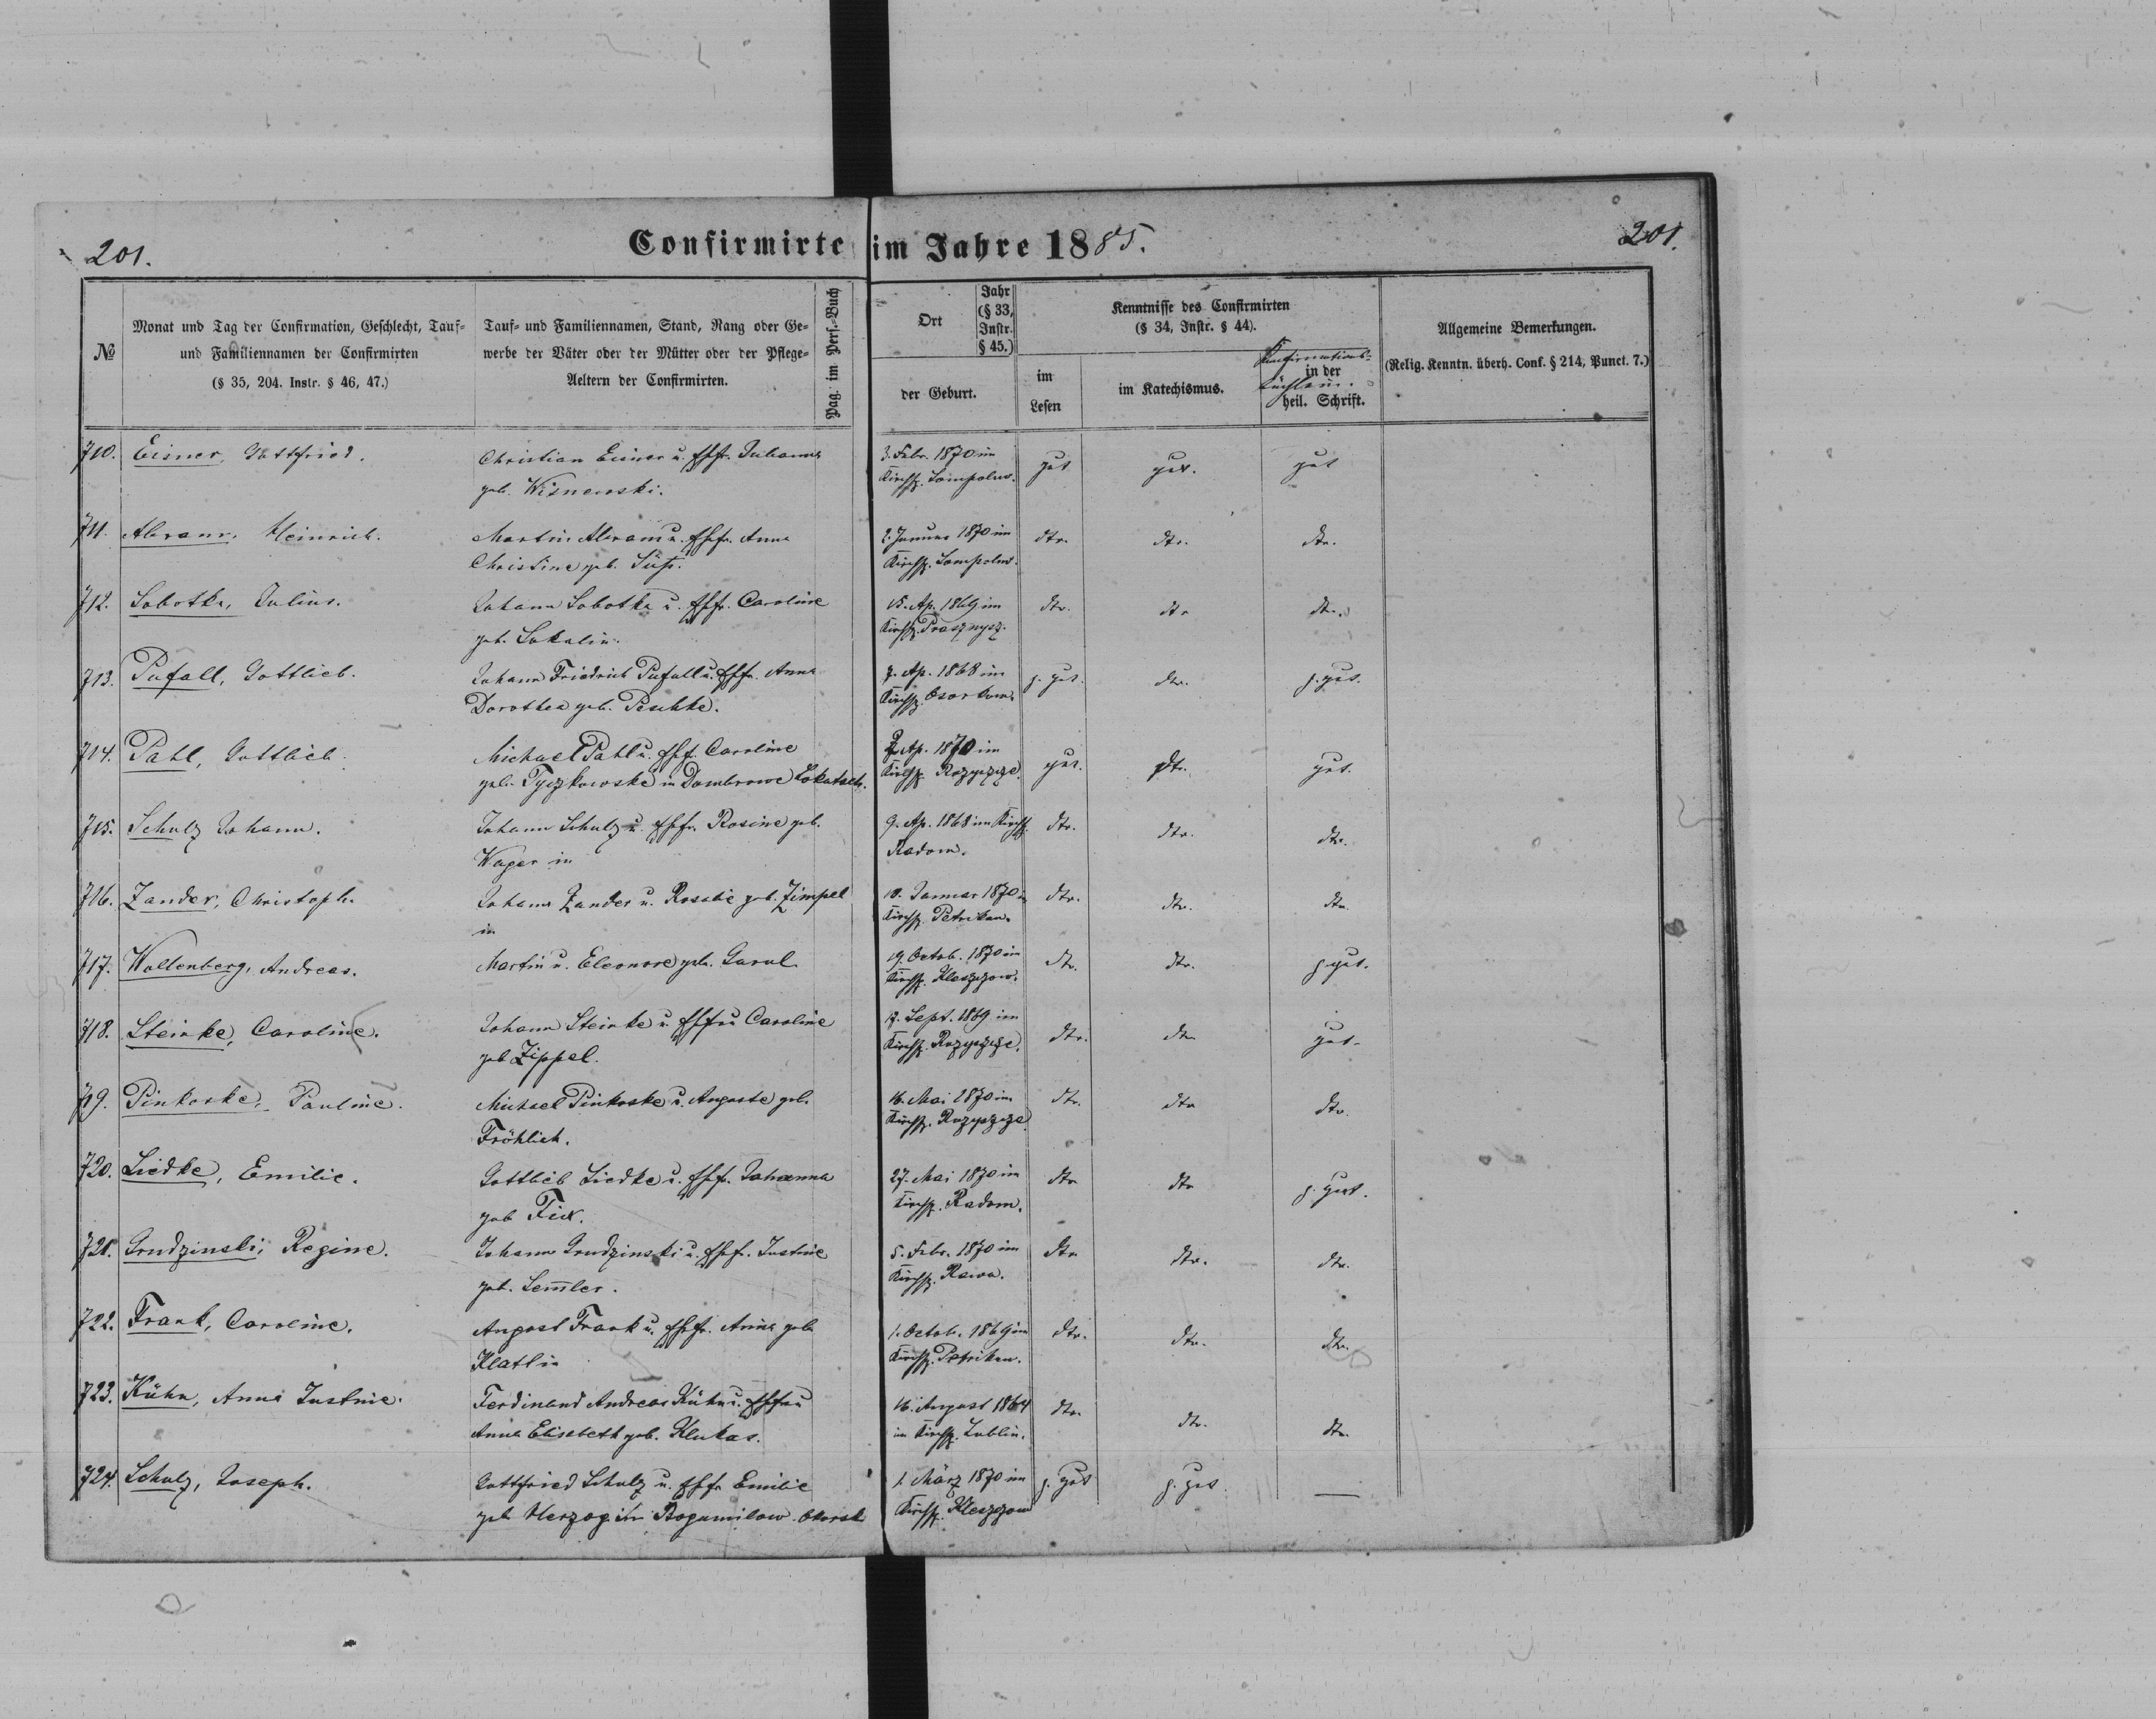 201.
Confirmirte im Jahre 1885.
201.
№
Monat und Tag der Confirmation, Geschlecht, Tauf-
und Familiennamen der Confirmirten
(§ 35, 204. Instr. § 46, 47.)
Tauf- und Familiennamen, Stand, Rang oder Ge-
werbe der Väter oder der Mütter oder der Pflege-
Aeltern der Confirmirten.
Pag. im Pers.-Buch
Ort
Jahr
(§ 33,
Instr.
§ 45.)
der Geburt.
Kenntnisse des Confirmirten
(§ 34, Instr. § 44).
im
Lesen
im Katechismus.
Confirmations-
in der
büchlein.
heil. Schrift.
Allgemeine Bemerkungen.
(Relig. Kenntn. überh. Conf. § 214, Punct. 7.)
710. Eisner, Gottfried. Christian Eisner u. Ehfr. Juliana 3. Febr. 1870 im gut gut. gut
geb. Wisnewski. Kirchsp. Sompolno.
711. Abram, Heinrich. Martin Abram u. Ehfr. Anna 2. Januar 1870 im dto. dto. dto.
Christine geb. Süß. Kirchsp. Sompolno.
712. Sobotka, Julius. Johann Sobotka u. Ehfr. Caroline 15. Ap. 1869 im dto. dto dto.
geb. Sokalin. Kirchsp. Prasznysz.
713. Pufall, Gottlieb. Johann Friedrich Pufall u. Ehfr. Anna 7. Ap. 1868 im z. gut. dto. z. gut.
Dorothea geb. Peschke. Kirchsp. Osorkow.
714. Pahl, Gottlieb. Michael Pahl u. Ehf. Caroline 2. Ap. 1870 im gut. dto. gut.
geb. Tyczkowske in Dombrowe Lokatsch. Kirchsp. Rozyszcze.
715. Schulz Johann. Johann Schulz u. Ehfr. Rosine geb. 9. Ap. 1868 im Kirchsp. dto. dto. dto.
Wager in Radom.
716. Zander, Christoph. Johann Zander u. Rosalie geb. Zimpel 10. Januar 1870 in dto. dto. dto.
in Kirchsp. Petrikau.
717. Wollenberg, Andreas. Martin u. Eleonore geb. Garul 19. Octob. 1870 im dto. dto. z. gut.
Kirchsp. Kleszczow.
718. Steinke, Caroline. Johann Steinke u. Ehfrau Caroline 17. Sept. 1869 im dto. dto gut.
geb Zippel. Kirchsp. Rozyszcze.
719. Pinkoske, Pauline. Michael Pinkoske u. Auguste geb. 16. Mai 1870 im dto. dto dto.
Fröhlich. Kirchsp. Rozyszcze.
720. Liedke, Emilie. Gottlieb Liedke u. Ehf. Johanna 27. Mai 1870 im dto dto z. gut.
geb Fick. Kirchsp. Radom.
721. Grudzinski, Regine. Johann Grudzinski u. Ehf. Justine 5. Febr. 1870 im dto dto. dto.
geb. Sem̅ler. Kirchsp. Rawa.
722. Frank, Caroline. August Frank u. Ehfr. Anna geb 1. Octob. 1869 im dto. dto. dto.
Klatt in Kirchsp. Petrikau.
723. Kühn, Anna Justine. Ferdinand Andreas Kühn u. Ehfrau 16. August 1864 dto. dto. dto.
Anna Elisabeth geb. Klukas. im Kirchsp. Lublin.
724. Schulz, Joseph. Gottfried Schulz u. Ehfr Emilie 1. März 1870 im z. gut z. gut —
geb Herzog in Bogumilow Kirchsp. Kleszczow